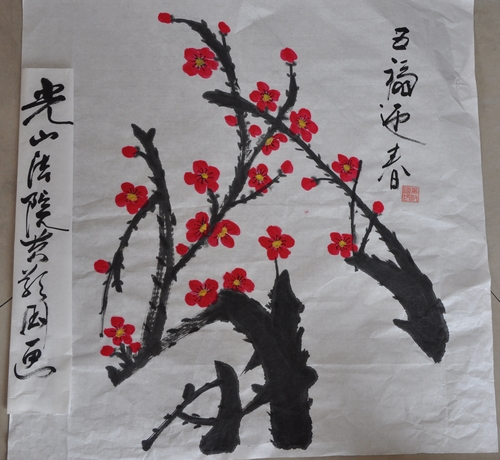 五福迎春
光山法院黄新国画